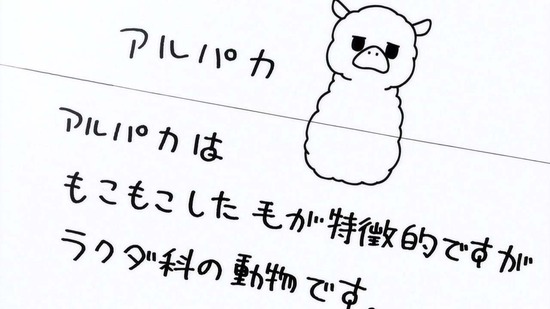 アルパカ
アルパカは
もこもこした毛が特徴的ですが
ラクダ科の動物です。